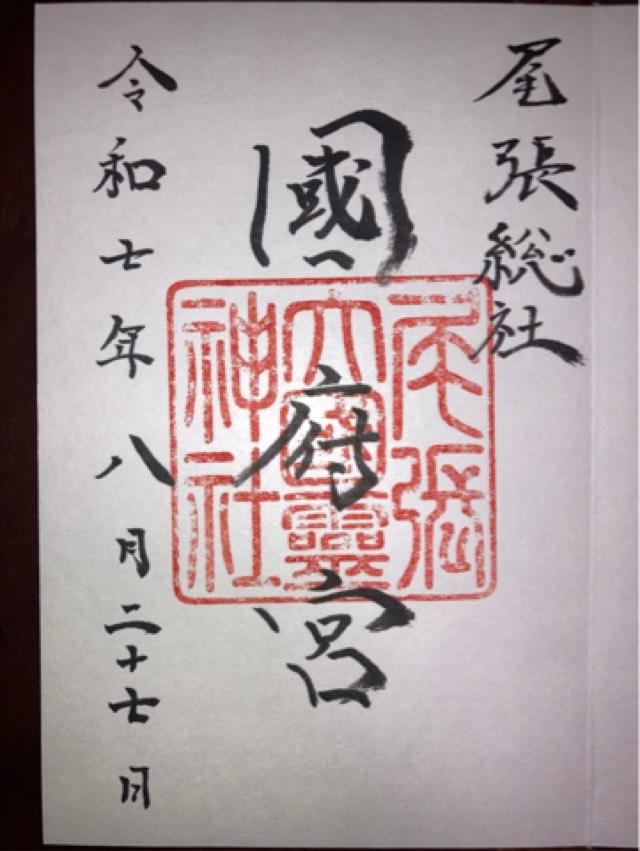 尾張総社
國府宮
尾張大國霊神社
令和七年八月二十七日